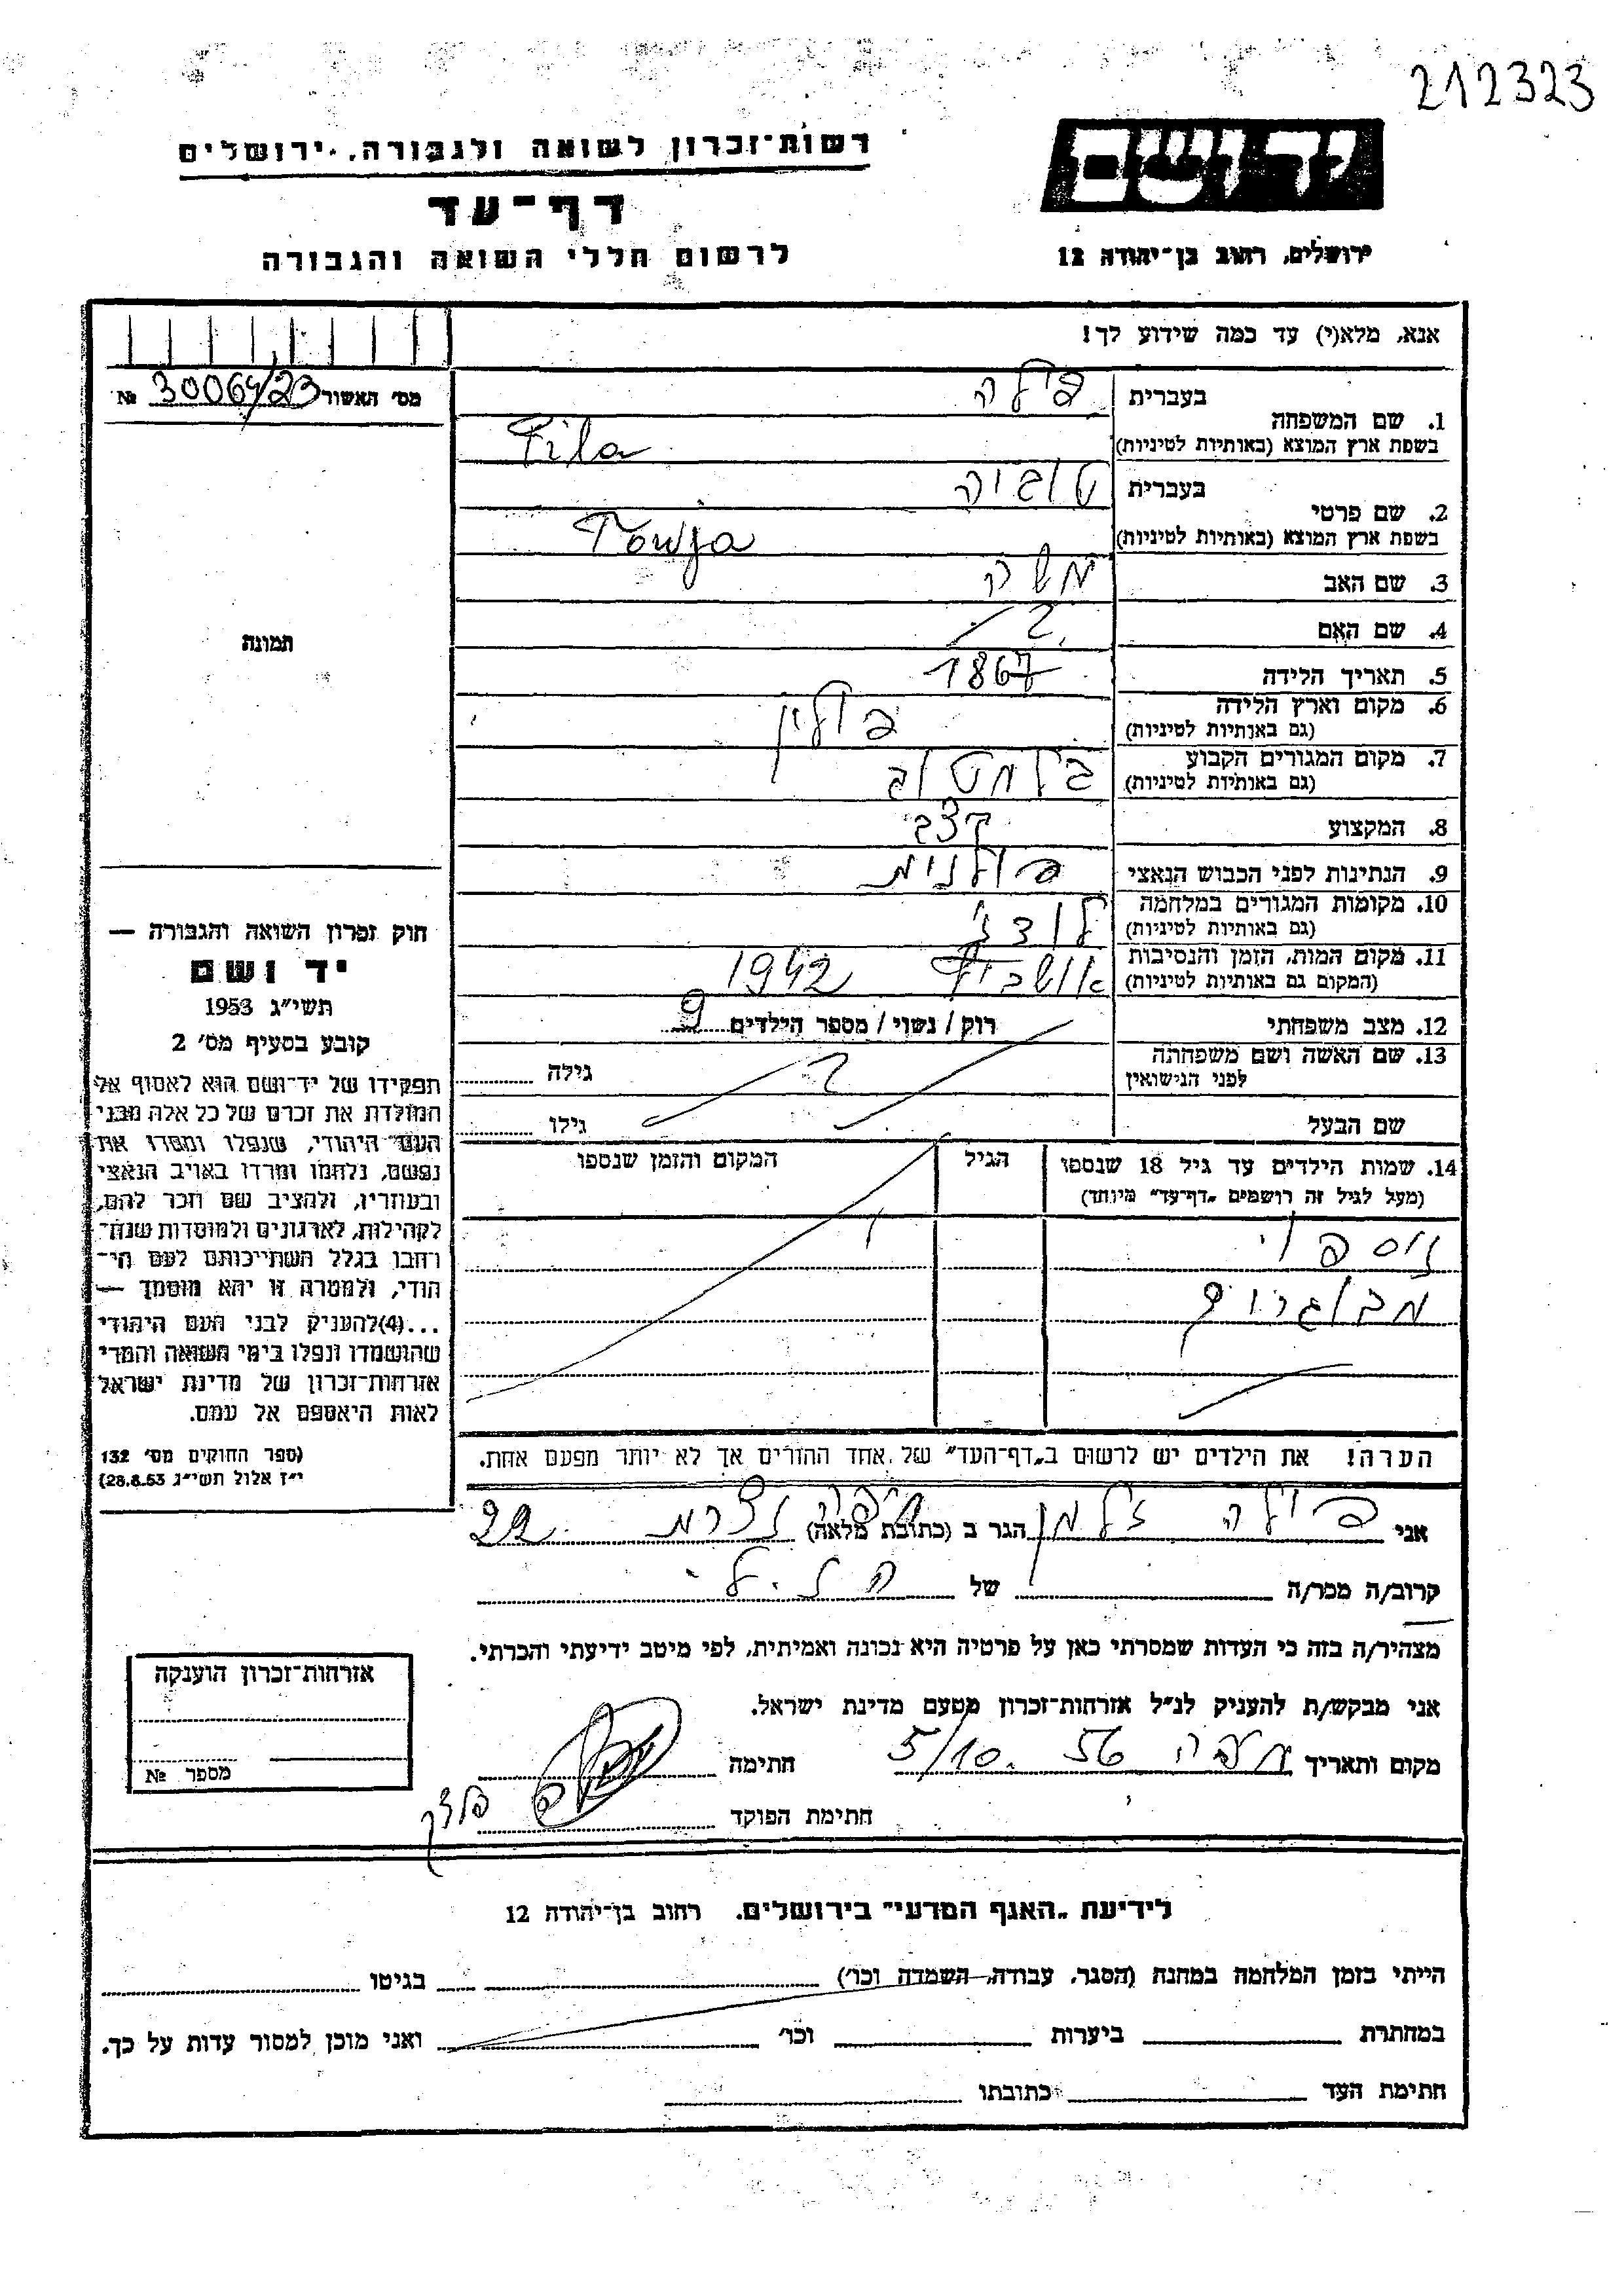 212323
יד ושם
רשות־זכרון לשואה ולגבורה, ירושלים
דף־עד
ירושלים, רחוב בן־יהודה 12
לרשום חללי השואה והגבורה
אנא, מלא(י) עד כמה שידוע לך!
מס׳ האשור 30064/23 №
1. שם המשפחה
בעברית פילה
בשפת ארץ המוצא (באותיות לטיניות) Fila
2. שם פרטי
בעברית טוביה
בשפת ארץ המוצא (באותיות לטיניות) Towja
3. שם האב משה
4. שם האם ?
5. תאריך הלידה 1867
6. מקום וארץ הלידה פולין
(גם באותיות לטיניות)
7. מקום המגורים הקבוע
(גם באותיות לטיניות)
8. המקצוע קצב
9. הנתינות לפני הכבוש הנאצי פולנית
10. מקומות המגורים במלחמה לודז׳
(גם באותיות לטיניות)
11. מקום המות, הזמן והנסיבות אושביץ 1942
(המקום גם באותיות לטיניות)
12. מצב משפחתי רוק / נשוי / מספר הילדים 9
13. שם האשה ושם משפחתה ? גילה
לפני הנישואין
שם הבעל גילו
14. שמות הילדים עד גיל 18 שנספו הגיל המקום והזמן שנספו
(מעל לגיל זה רושמים „דף־עד” מיוחד)
נוספו
הערה! את הילדים יש לרשום ב„דף־העד” של אחד ההורים אך לא יותר מפעם אחת.
תמונה
חוק זכרון השואה והגבורה —
יד ושם
תשי״ג 1953
קובע בסעיף מס׳ 2
תפקידו של יד־ושם הוא לאסוף אל
המולדת את זכרם של כל אלה מבני
העם היהודי, שנפלו ומסרו את
נפשם, נלחמו ומרדו באויב הנאצי
ובעוזריו, ולהציב שם וזכר להם,
לקהילות, לארגונים ולמוסדות שנח־
רחבו בגלל השתייכותם לעם הי־
הודי, ולמטרה זו יהא מוסמך —
...(4) להעניק לבני העם היהודי
שהושמדו ונפלו בימי השואה והמרי
אזרחות־זכרון של מדינת ישראל
לאות היאספם אל עמם.
(ספר החוקים מס׳ 132
י״ז אלול תשי״ג 28.8.53)
אני פילה זלמן הגר ב (כתובת מלאה) חיפה נצרת 22
קרוב/ה מכר/ה של
מצהיר/ה בזה כי העדות שמסרתי כאן על פרטיה היא נכונה ואמיתית, לפי מיטב ידיעתי והכרתי.
אני מבקש/ת להעניק לנ״ל אזרחות־זכרון מטעם מדינת ישראל.
מקום ותאריך חיפה 5/10. 56 חתימה
חתימת הפוקד
אזרחות־זכרון הוענקה
מספר №
לידיעת „האגף המדעי” בירושלים, רחוב בן־יהודה 12
הייתי בזמן המלחמה במחנה (הסגר, עבודה, השמדה וכו׳) בגיטו
במחתרת ביערות וכו׳ ואני מוכן למסור עדות על כך.
חתימת העד כתובתו